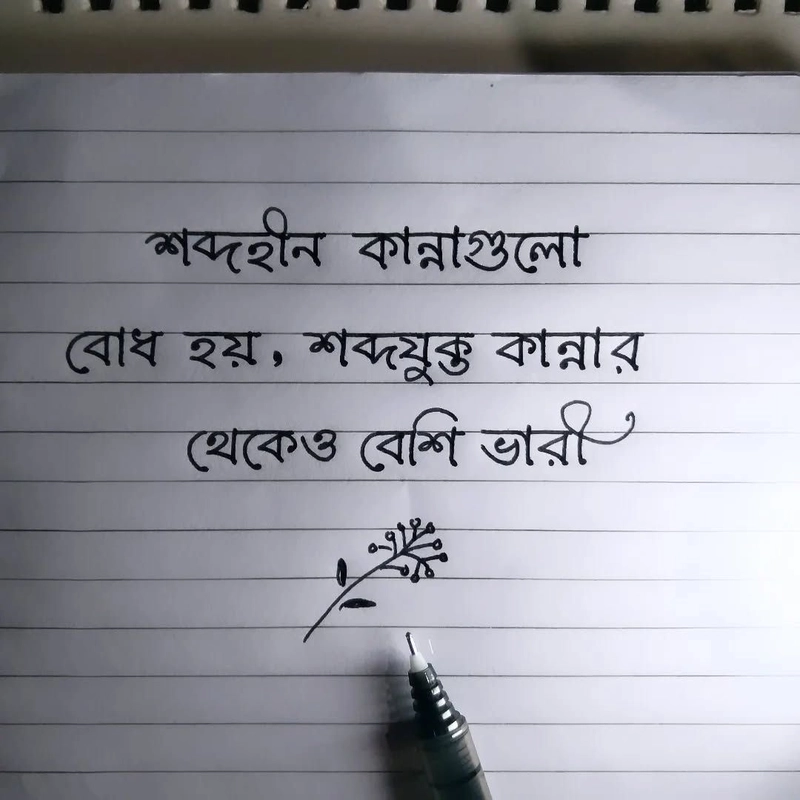 শব্দহীন কান্নাগুলো
বোধ হয়, শব্দযুক্ত কান্নার
থেকেও বেশি ভারী